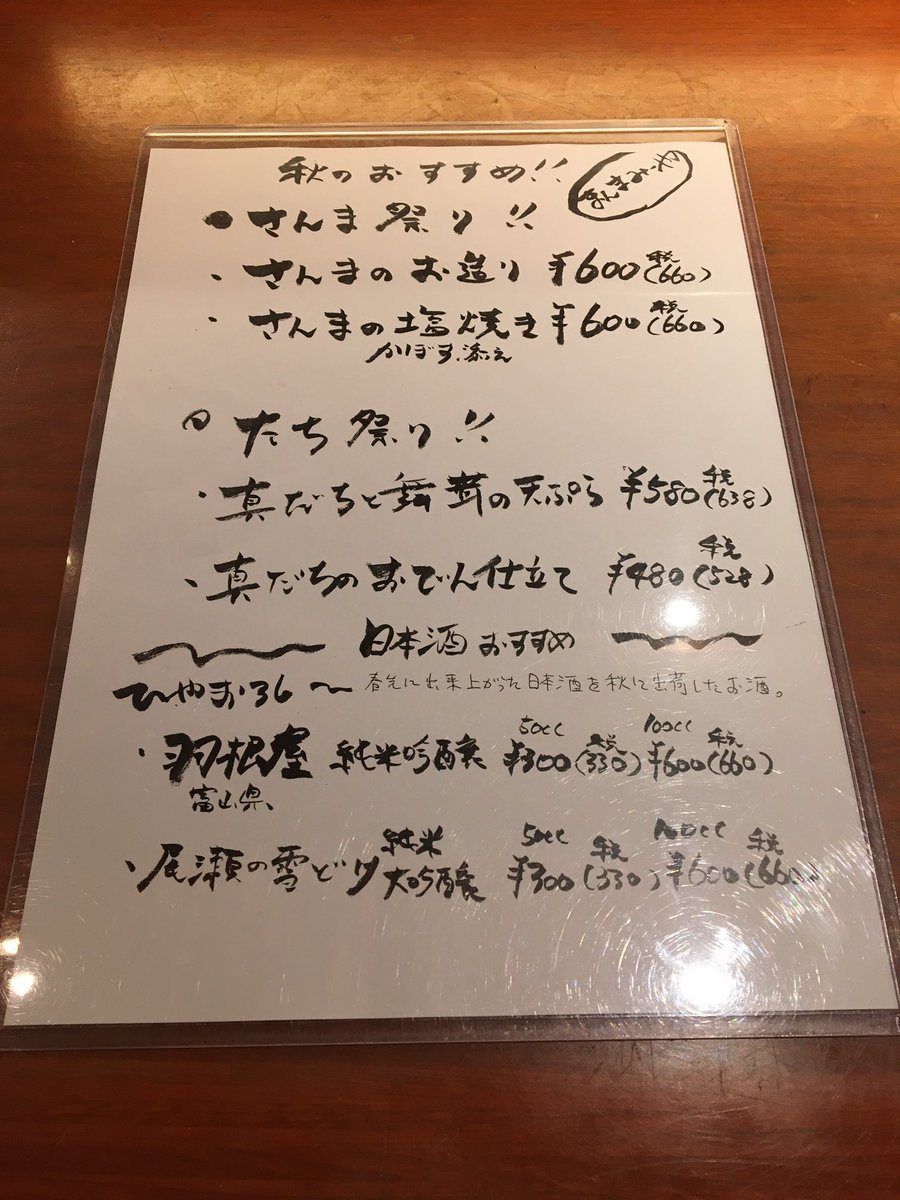 秋のおすすめ!!
● さんま祭り!!
・さんまのお造り ¥600税(660)
・さんまの塩焼き ¥600税(660)
かぼす添え
たち祭り!!
・真だちと舞茸の天ぷら ¥580税(638)
・真だちのおでん仕立て ¥480税(528)
日本酒おすすめ
ひやおろし〜 春先に出来上がった日本酒を秋に出荷したお酒。
・羽根屋 純米吟醸 50cc ¥300税(330) 100cc ¥600税(660)
富山県、
・尾瀬の雪どけ 純米大吟醸 50cc ¥300税(330) 100cc ¥600税(660)